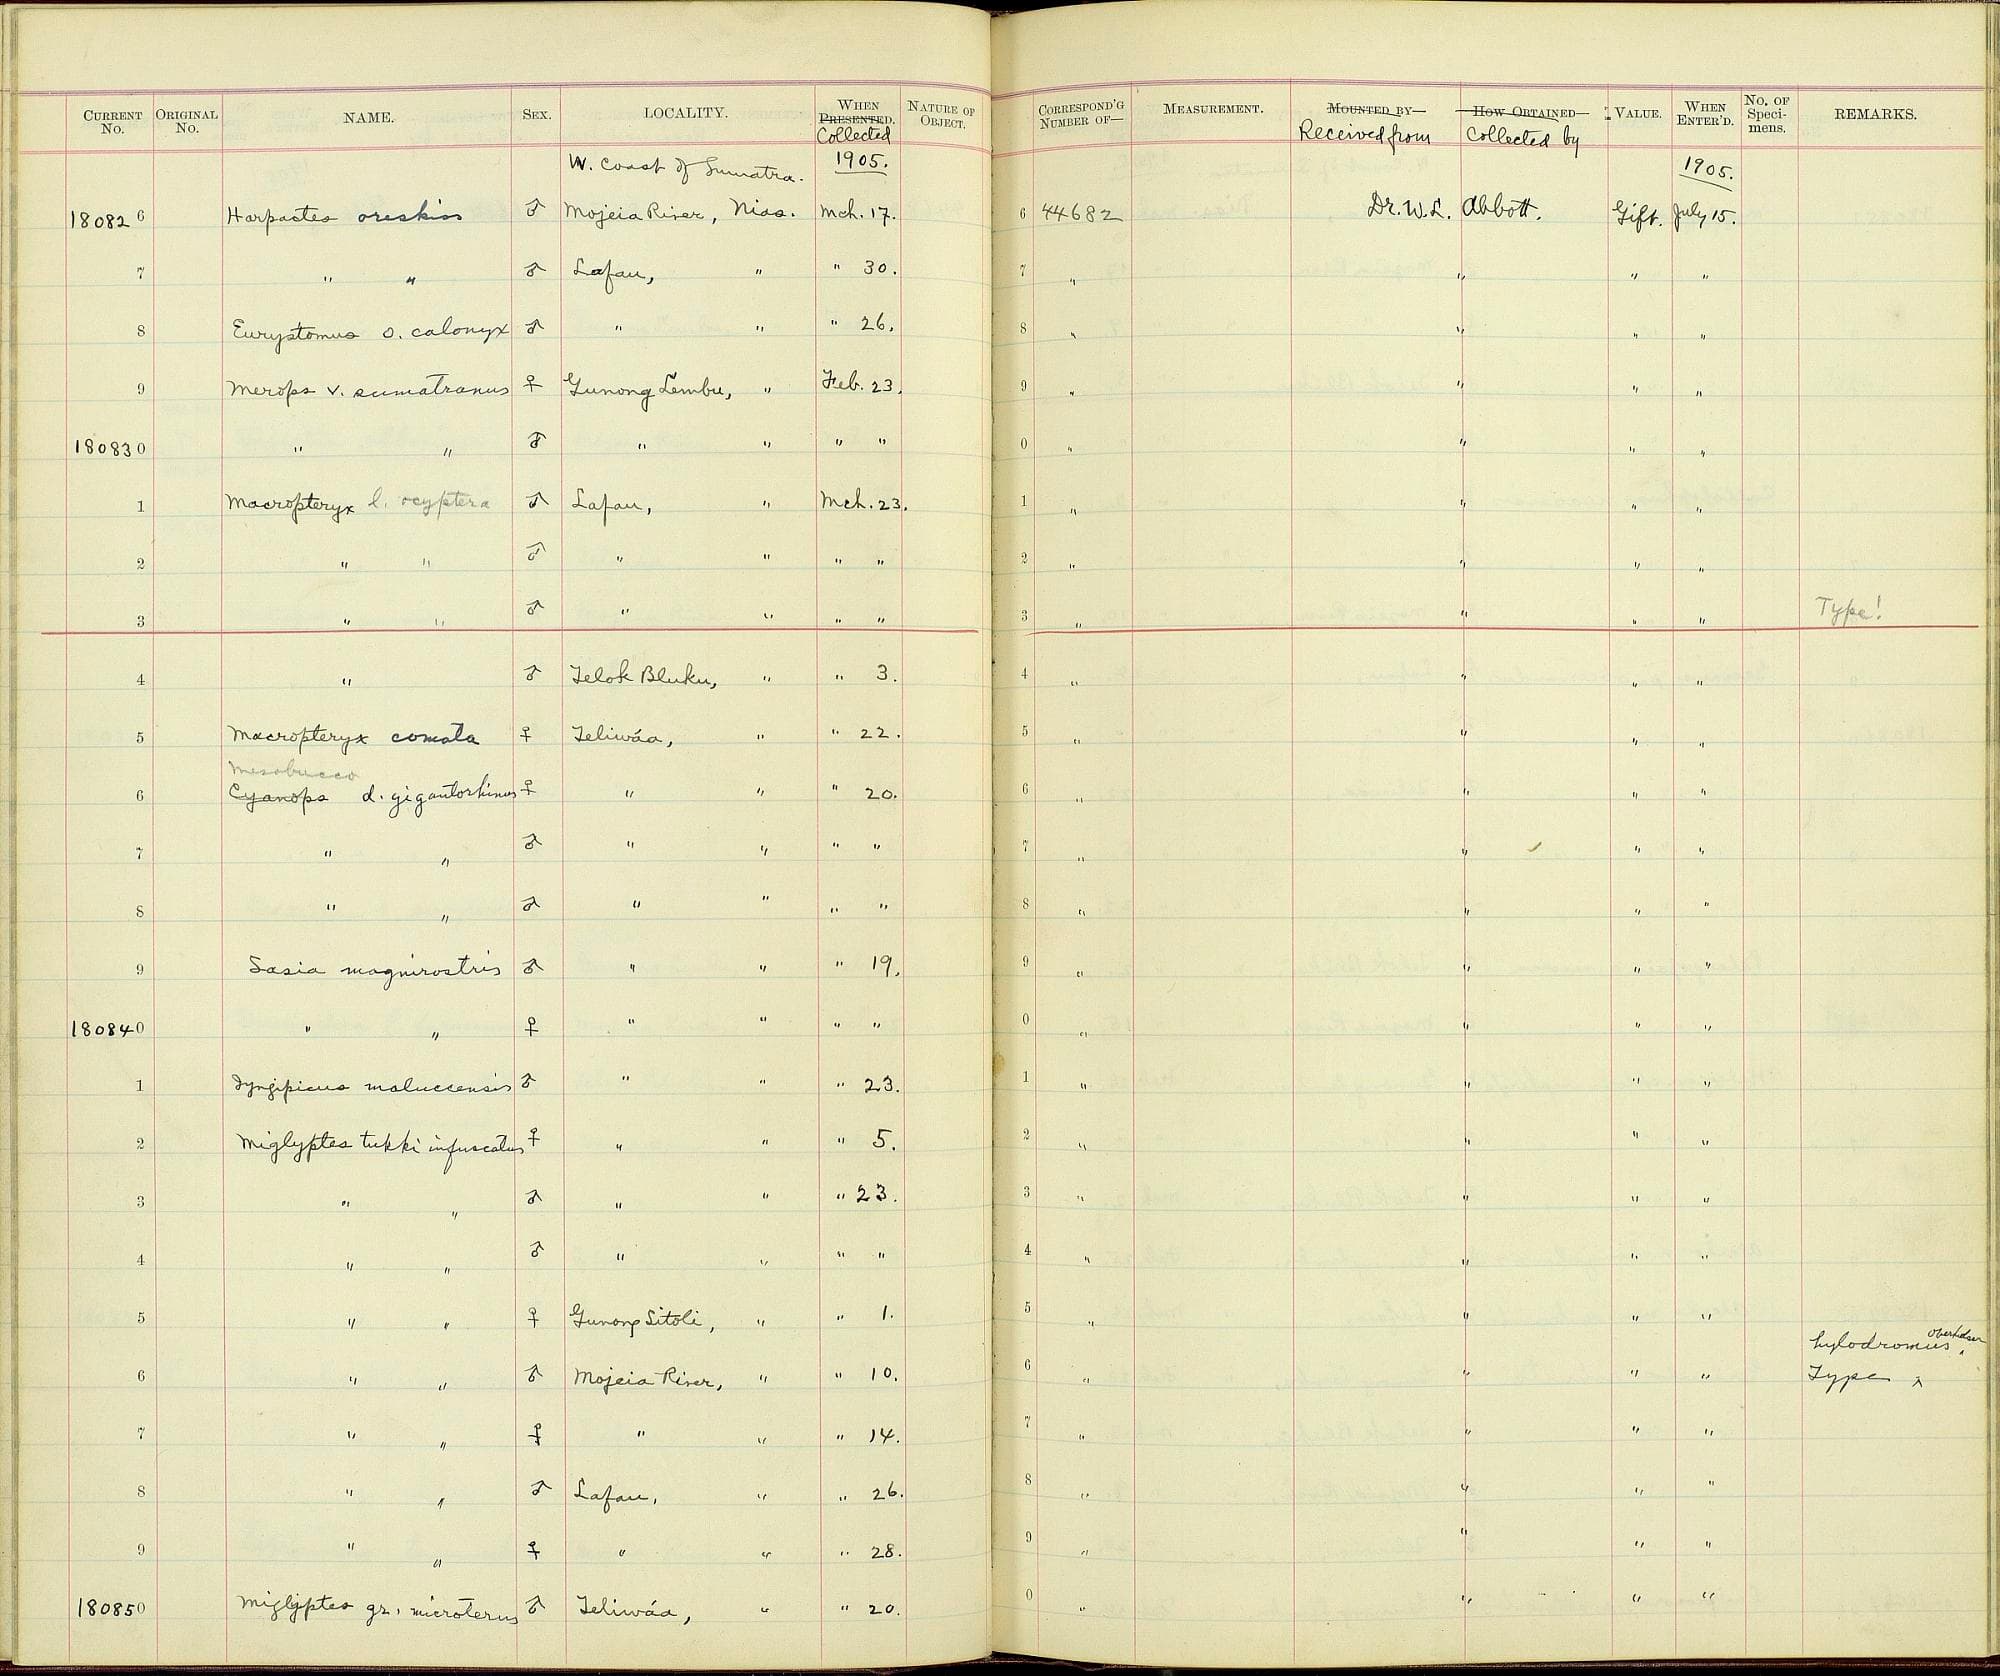 CURRENT No. ORIGINAL No. NAME. SEX. LOCALITY. WHEN PRESENTED. Collected NATURE OF OBJECT. CORRESPOND'G NUMBER OF— MEASUREMENT. MOUNTED BY— Received from HOW OBTAINED— Collected by VALUE. WHEN ENTER'D. No. OF Speci-mens. REMARKS.
W. Coast of Sumatra. 1905. 1905.
180826 Harpactes oreskios ♂ Mojeia River, Nias. Mch. 17. 6 44682 Dr. W. L. Abbott. Gift. July 15.
7 " " ♂ Lafau, " " 30. 7 " " " "
8 Eurystomus o. calonyx ♂ " " " 26. 8 " " " "
9 Merops v. sumatranus ♀ Gunong Lembu, " Feb. 23. 9 " " " "
180830 " " ♂ " " " " 0 " " " "
1 Macropteryx l. ocyptera ♂ Lafau, " Mch. 23. 1 " " " "
2 " " ♂ " " " " 2 " " " "
3 " " ♂ " " " " 3 " " " " Type!
4 " ♂ Telok Bluku, " " 3. 4 " " " "
5 Macropteryx comata ♀ Teliwáa, " " 22. 5 " " " "
Mesobucco
6 Cyanops d. gigantorhinus ♀ " " " 20. 6 " " " "
7 " " ♂ " " " " 7 " " " "
8 " " ♂ " " " " 8 " " " "
9 Sasia magnirostris ♂ " " " 19. 9 " " " "
180840 " " ♀ " " " " 0 " " " "
1 Iyngipicus moluccensis ♂ " " " 23. 1 " " " "
2 Miglyptes tukki infuscatus ♀ " " " 5. 2 " " " "
3 " " ♂ " " " 23. 3 " " " "
4 " " ♂ " " " " 4 " " " "
5 " " ♀ Gunong Sitoli, " " 1. 5 " " " "
hylodromus Oberholser
6 " " ♂ Mojeia River, " " 10. 6 " " " " Type
7 " " ♀ " " " 14. 7 " " " "
8 " " ♂ Lafau, " " 26. 8 " " " "
9 " " ♀ " " " 28. 9 " " " "
180850 Miglyptes gr. microterus ♂ Teliwáa, " " 20. 0 " " " "